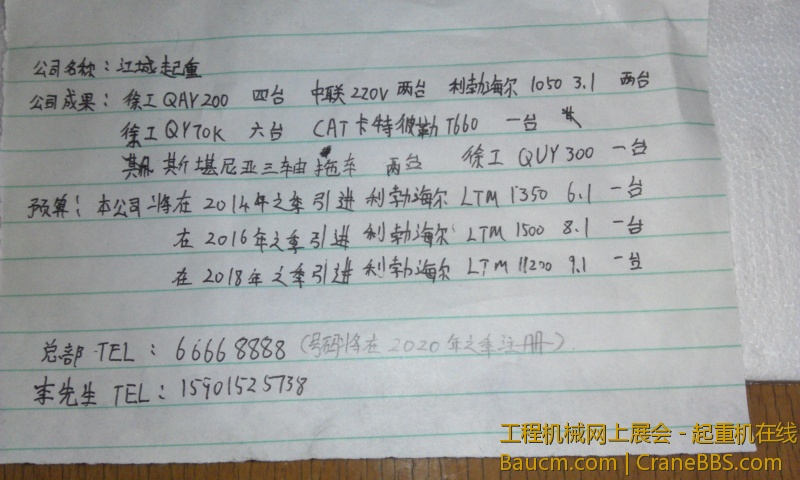 公司名称：江城起重
公司成果：徐工QAY200 四台 中联220V 两台 利勃海尔 1050 3.1 两台
徐工QY70K 六台 CAT卡特彼勒T660 一台
斯堪尼亚三轴拖车 两台 徐工QUY300 一台
预算：本公司将在2014年之季引进利勃海尔 LTM 1350 6.1 一台
在2016年之季引进利勃海尔 LTM 1500 8.1 一台
在2018年之季引进利勃海尔 LTM 11200 9.1 一台
总部 TEL：66668888（号码将在2020年之季注册）
李先生 TEL：15901525738
工程机械网上展会 - 起重机在线
Baucm.com | CraneBBS.com